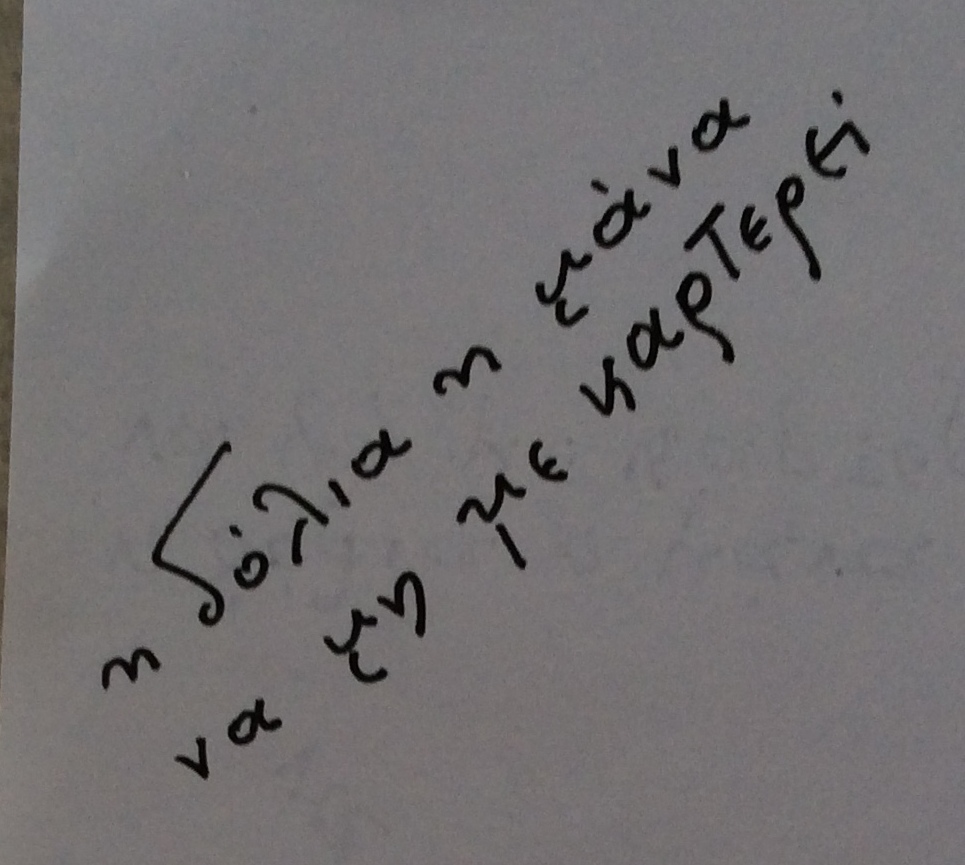 η δόλια η μάνα
να μη με καρτερεί